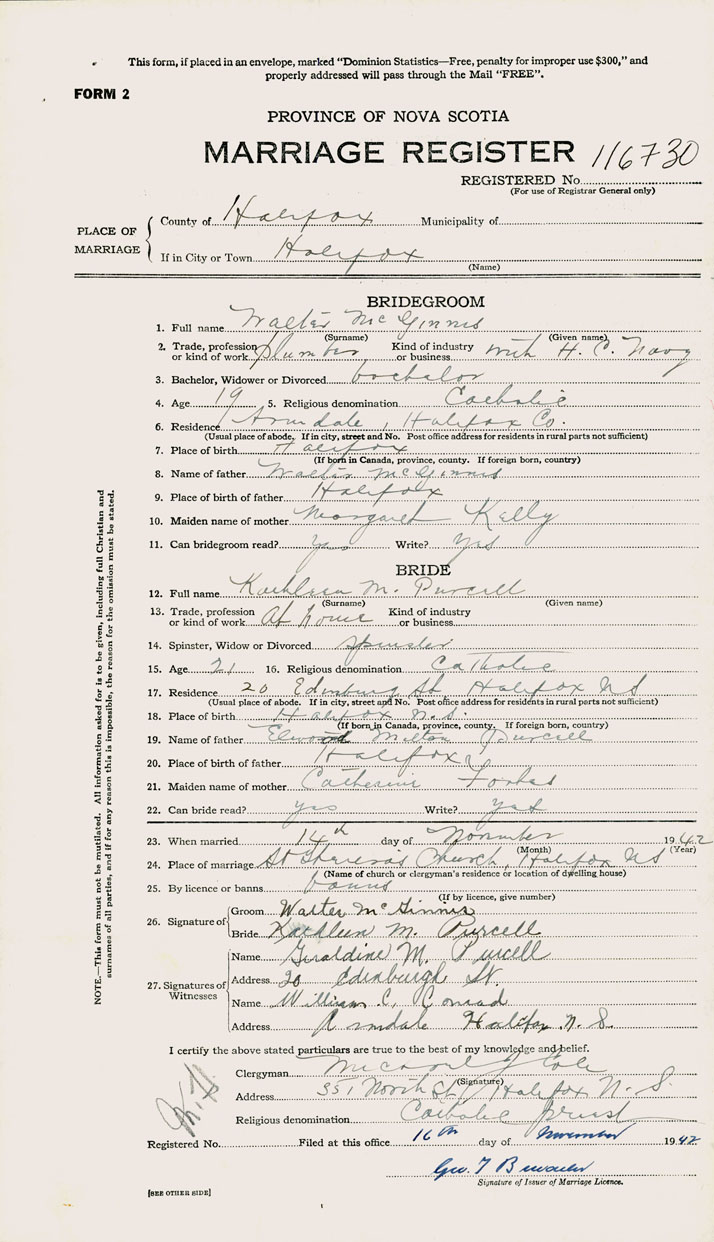 This form, if placed in an envelope, marked "Dominion Statistics—Free, penalty for improper use $300," and
properly addressed will pass through the Mail "FREE".
FORM 2
PROVINCE OF NOVA SCOTIA
MARRIAGE REGISTER 116730
REGISTERED No.
(For use of Registrar General only)
PLACE OF MARRIAGE
County of Halifax Municipality of
If in City or Town Halifax
(Name)
BRIDEGROOM
1. Full name Walter McGinnis
(Surname) (Given name)
2. Trade, profession or kind of work plumber Kind of industry or business with H. C. Navy
3. Bachelor, Widower or Divorced bachelor
4. Age 19 5. Religious denomination Catholic
6. Residence Armdale, Halifax Co.
(Usual place of abode. If in city, street and No. Post office address for residents in rural parts not sufficient)
7. Place of birth Halifax
(If born in Canada, province, county. If foreign born, country)
8. Name of father Walter McGinnis
9. Place of birth of father Halifax
10. Maiden name of mother Margaret Kelly
11. Can bridegroom read? Yes Write? Yes
BRIDE
12. Full name Kathleen M. Purcell
(Surname) (Given name)
13. Trade, profession or kind of work At home Kind of industry or business
14. Spinster, Widow or Divorced spinster
15. Age 21 16. Religious denomination Catholic
17. Residence 20 Edinburg St Halifax NS
(Usual place of abode. If in city, street and No. Post office address for residents in rural parts not sufficient)
18. Place of birth Halifax N.S.
(If born in Canada, province, county. If foreign born, country)
19. Name of father Elwood Milton Purcell
20. Place of birth of father Halifax
21. Maiden name of mother Catherine Forbes
22. Can bride read? yes Write? yes
23. When married 14th day of November 1942
(Month) (Year)
24. Place of marriage St Theresa's Church, Halifax NS
(Name of church or clergyman's residence or location of dwelling house)
25. By licence or banns banns
(If by licence, give number)
26. Signature of
Groom Walter McGinnis
Bride Kathleen M. Purcell
27. Signatures of Witnesses
Name Geraldine M. Purcell
Address 20 Edinburgh St.
Name William C. Conrad
Address Armdale Halifax N. S.
I certify the above stated particulars are true to the best of my knowledge and belief.
Clergyman
(Signature)
Address 351 North St, Halifax N. S.
Religious denomination Catholic priest
Registered No. Filed at this office 16th day of November 1942
Geo. T
Signature of Issuer of Marriage Licence.
[SEE OTHER SIDE]
NOTE.—This form must not be mutilated. All information asked for is to be given, including full Christian and
surnames of all parties, and if for any reason this is impossible, the reason for the omission must be stated.